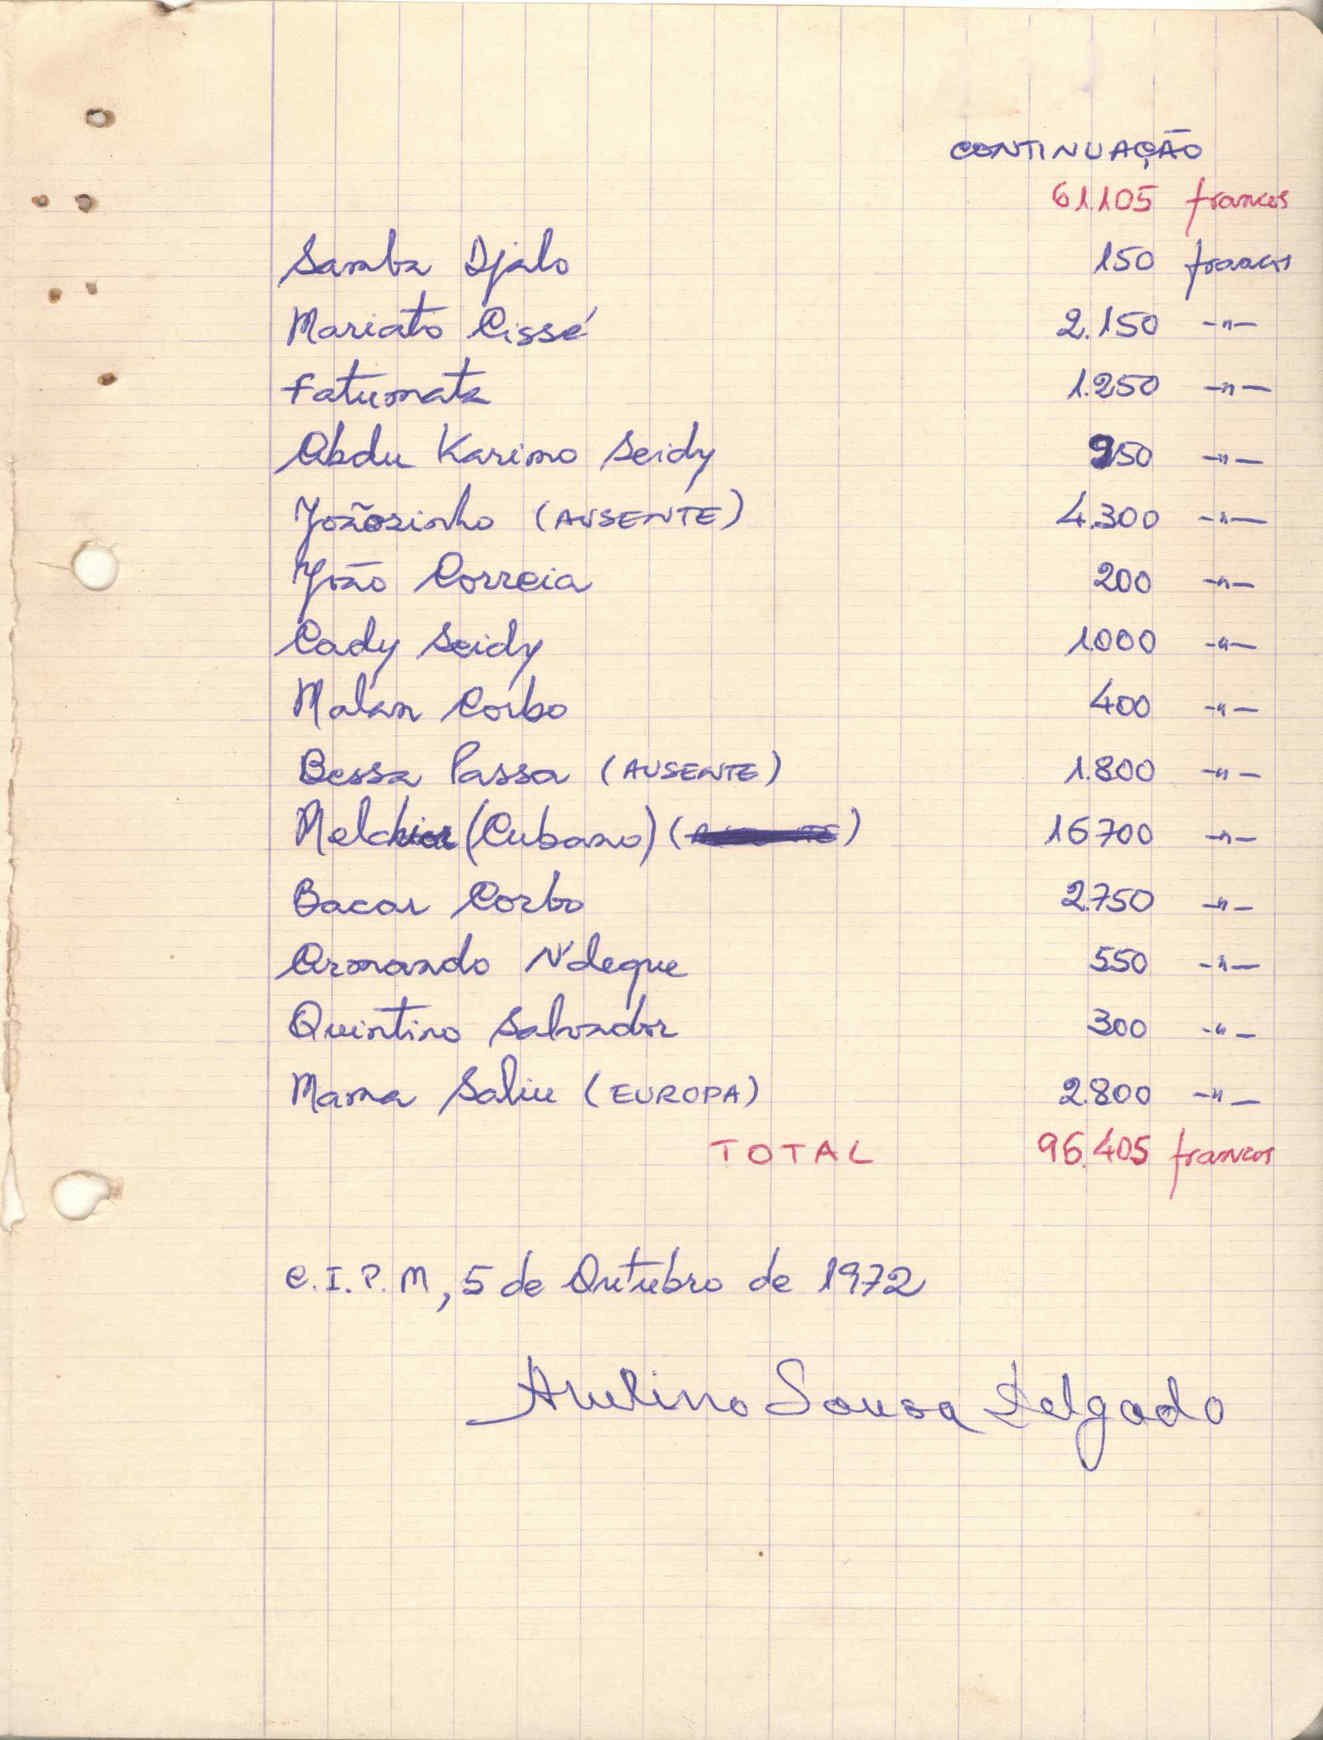 CONTINUAÇÃO
61.105 francos
Samba Djalo 150 francos
Mariato Cissé 2.150 -"-
Fatumata 1.250 -"-
Abdu Karimo Seidy 950 -"-
Joãozinho (AUSENTE) 4.300 -"-
João Correia 200 -"-
Cady Seidy 1.000 -"-
Malan Corbo 400 -"-
Bessa Passa (AUSENTE) 1.800 -"-
Melchior (Cubano) ( ) 16.700 -"-
Bacar Corbo 2.750 -"-
Armando N'deque 550 -"-
Quintino Salvador 300 -"-
Mama Saliu (EUROPA) 2.800 -"-
TOTAL 96.405 francos
C.I.P.M, 5 de Outubro de 1972
Avelino Sousa Delgado